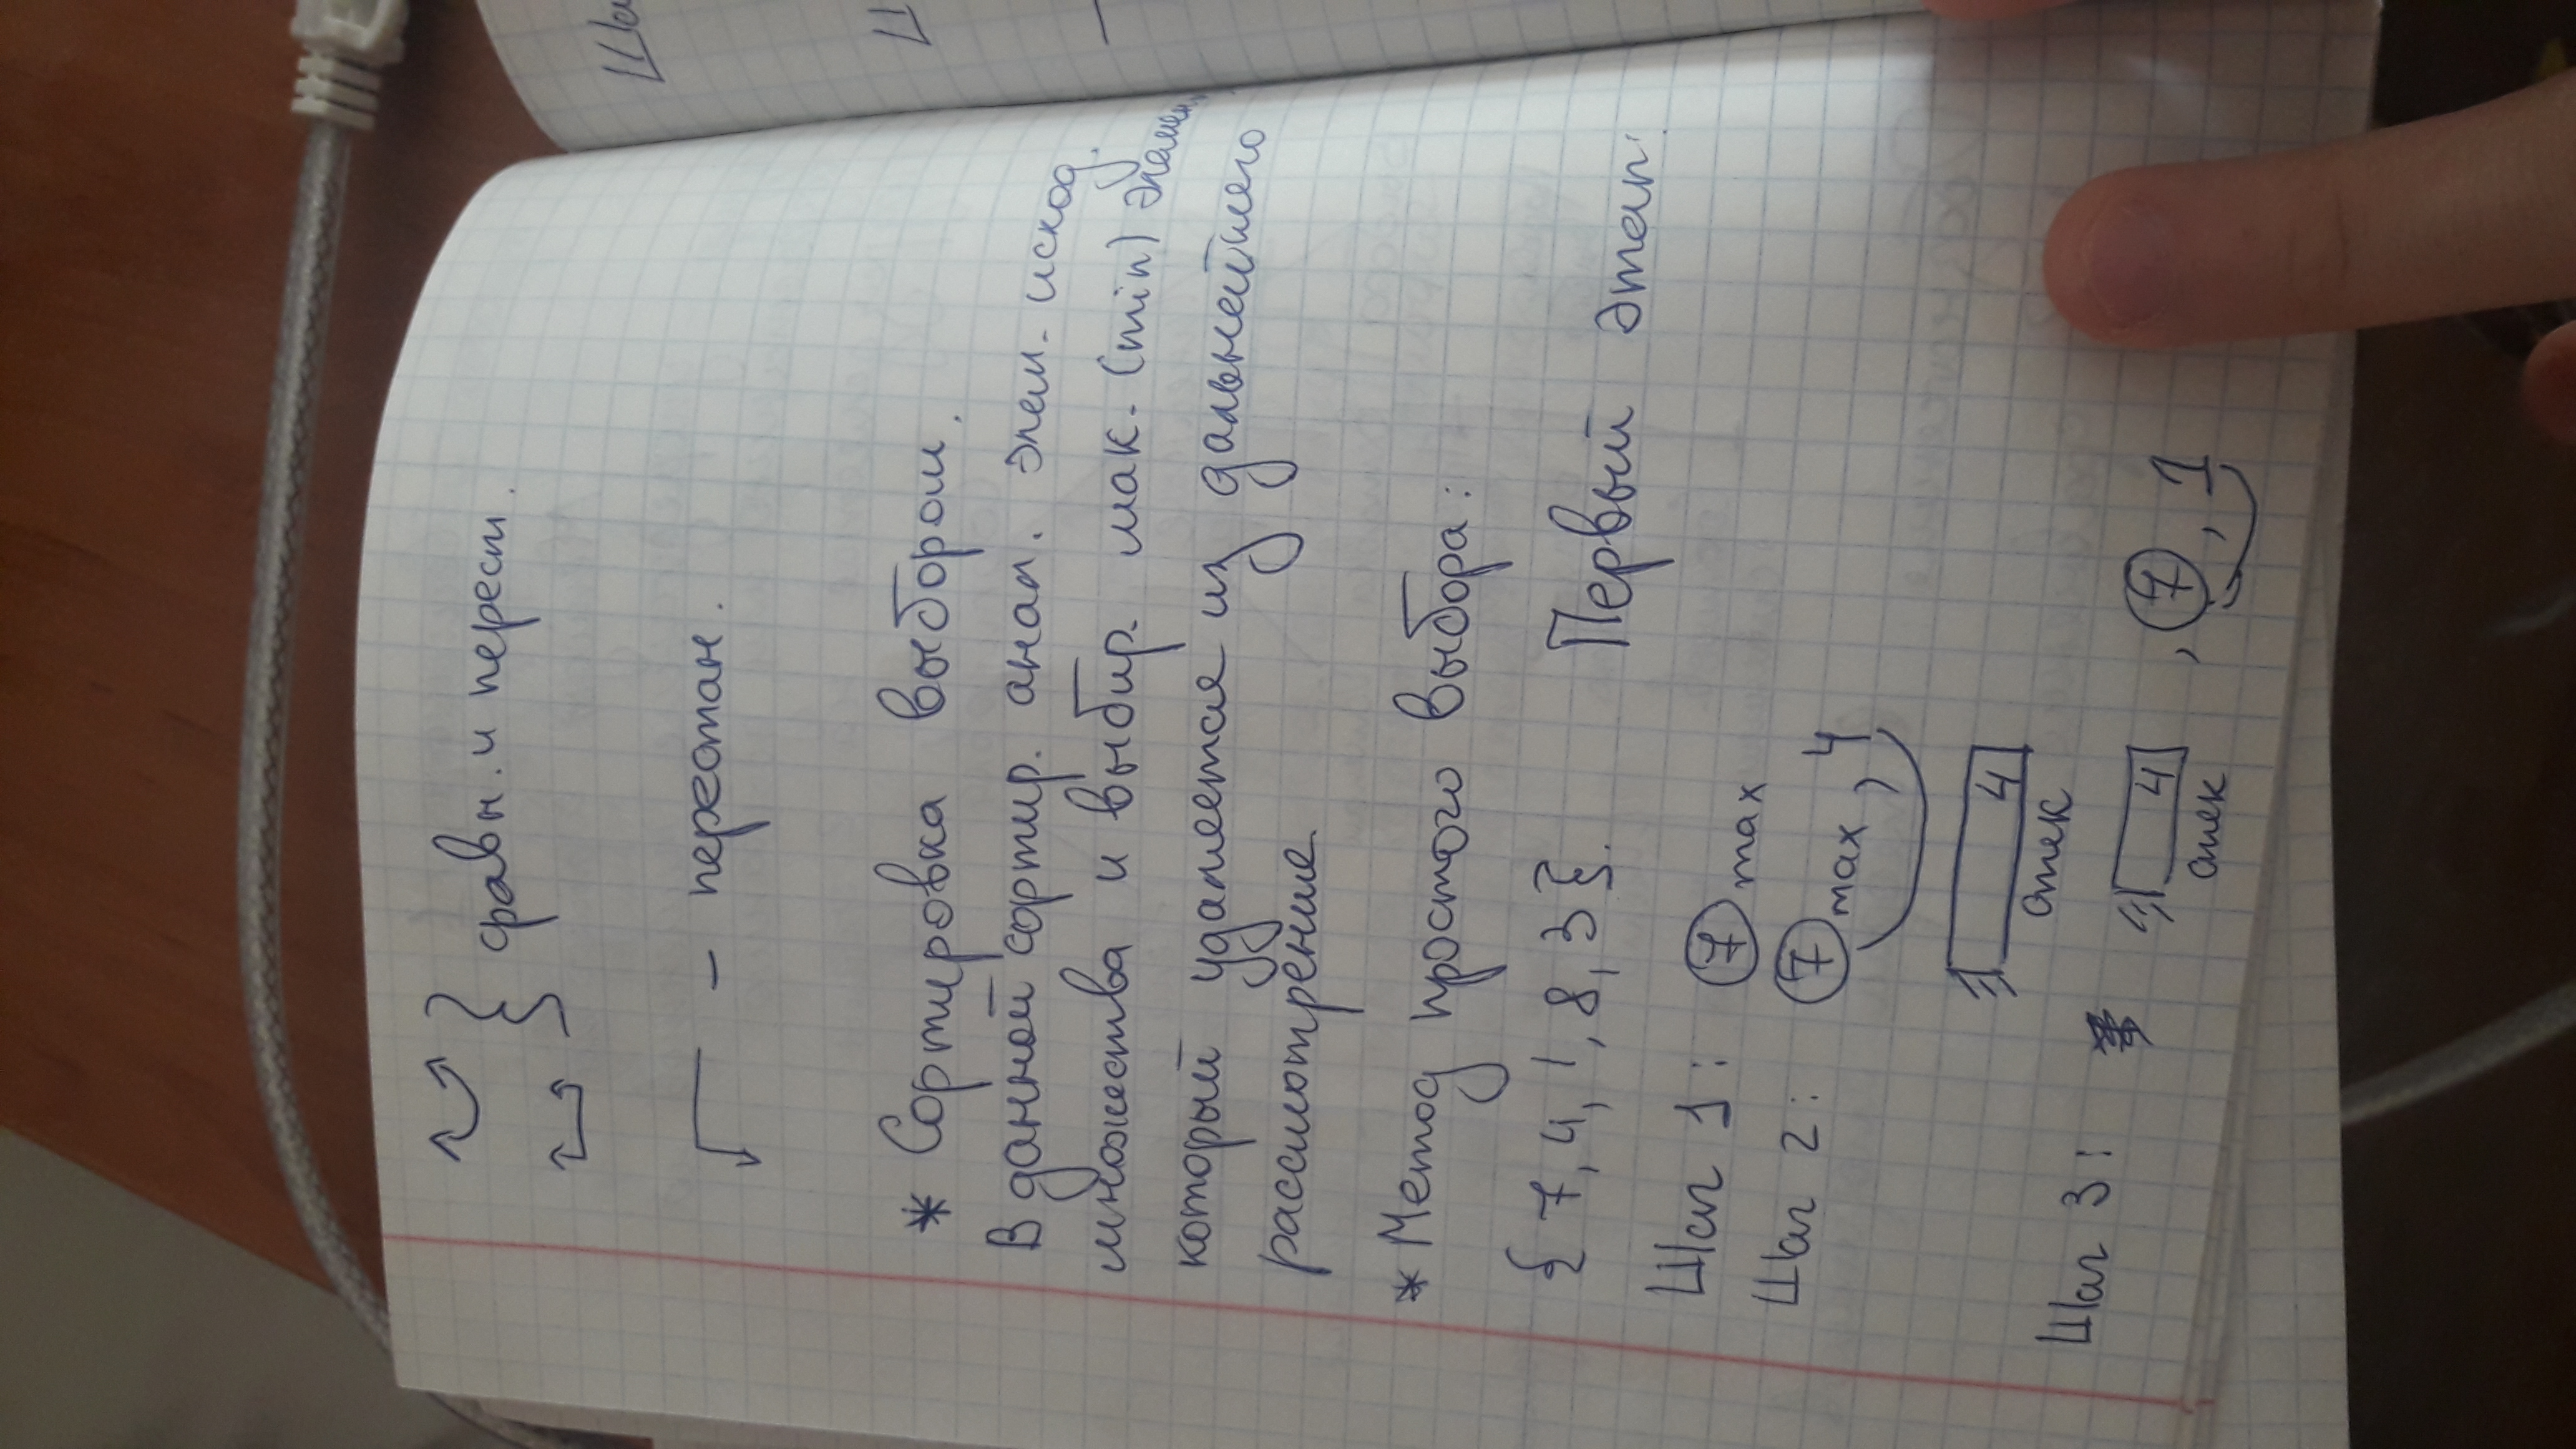 сравн. и перест.
— перестан.
* Сортировка выбором.
В данной сортир. анал. элем. исход.
множества и выбир. мак. (min) элемен
который удаляется из дальнейшего
рассмотрение.
* Метод простого выбора:
{ 7, 4, 1, 8, 3 }. Первый этап:
Шаг 1: 7 max
Шаг 2: 7 max , 4
4
стек
Шаг 3: 4 , 7 , 1
стек
Ша